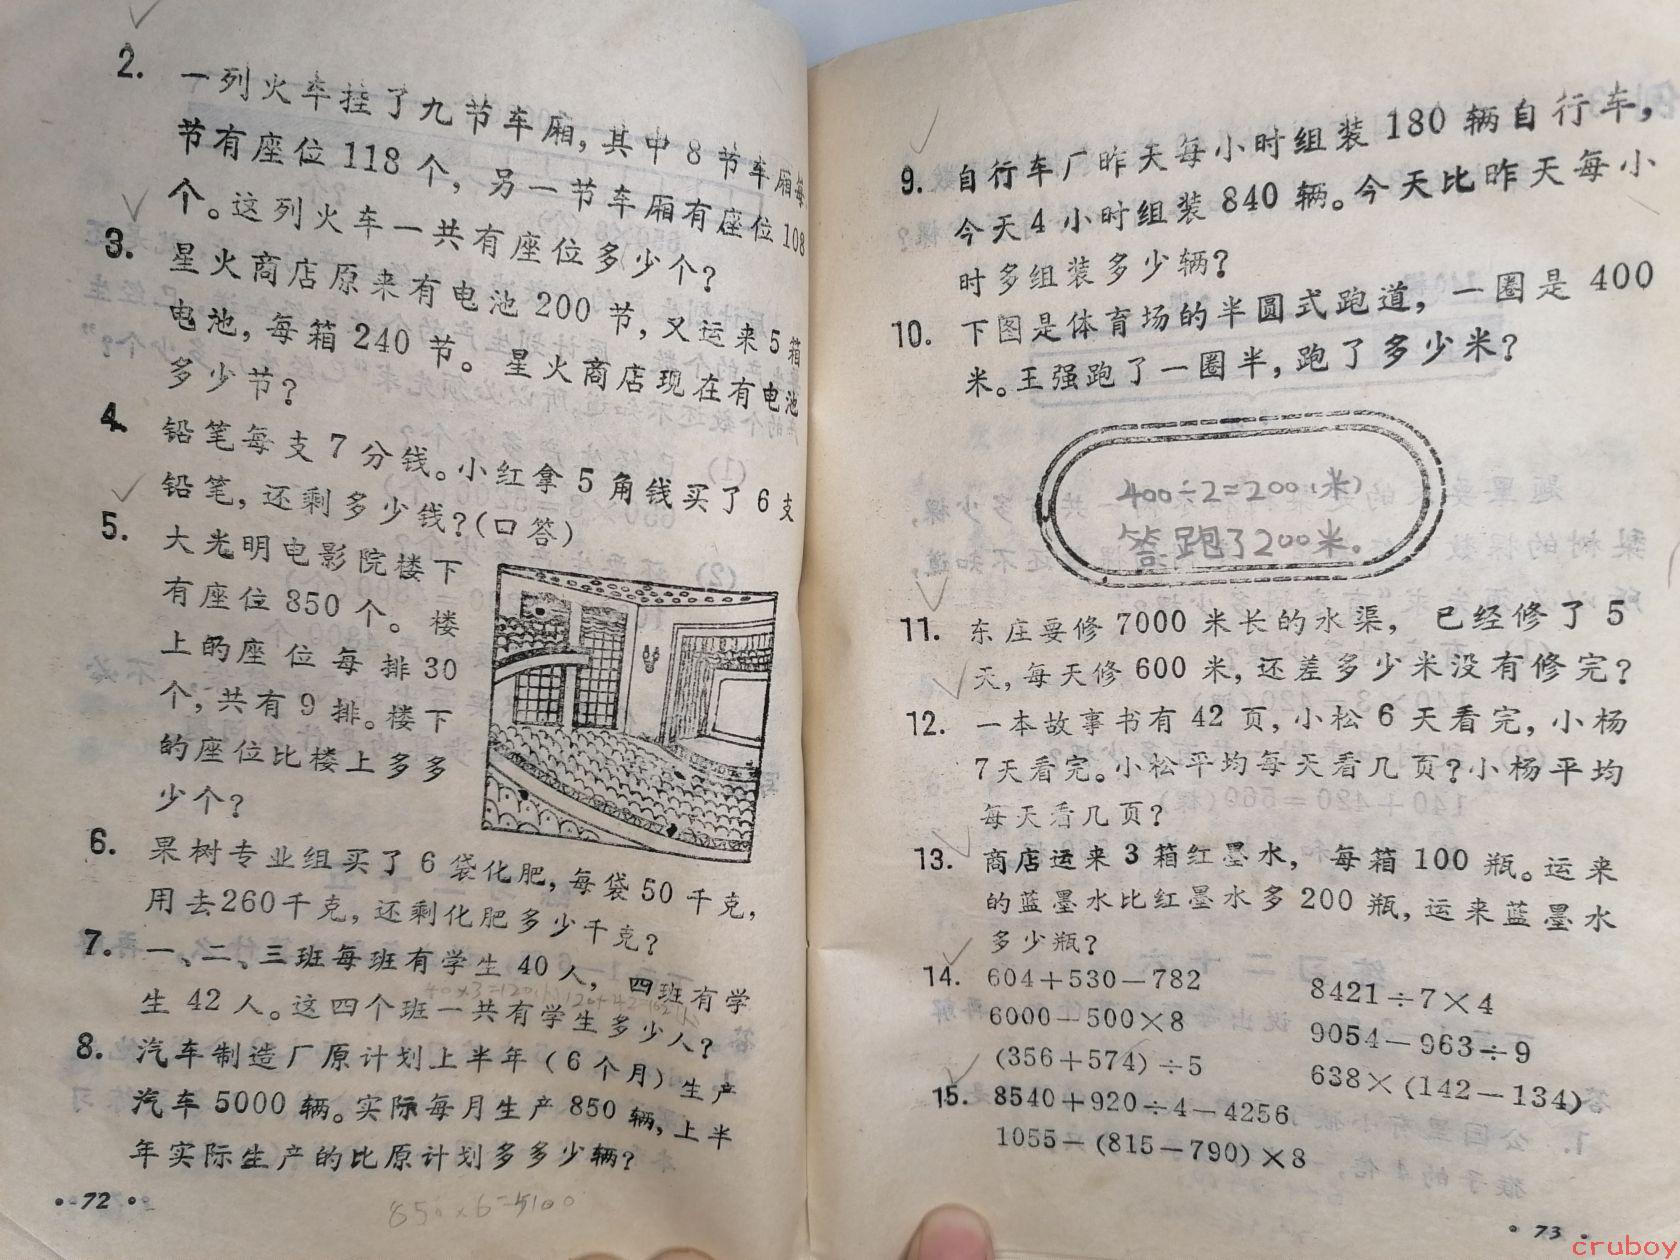 2. 一列火车挂了九节车厢，其中8节车厢每
节有座位118个，另一节车厢有座位108
个。这列火车一共有座位多少个？
3. 星火商店原来有电池200节，又运来5箱
电池，每箱240节。星火商店现在有电池
多少节？
4. 铅笔每支7分钱。小红拿5角钱买了6支
铅笔，还剩多少钱？(口答)
5. 大光明电影院楼下
有座位850个。楼
上的座位每排30
个，共有9排。楼下
的座位比楼上多多
少个？
6. 果树专业组买了6袋化肥，每袋50千克，
用去260千克，还剩化肥多少千克？
7. 一、二、三班每班有学生40人，四班有学
生42人。这四个班一共有学生多少人？
8. 汽车制造厂原计划上半年(6个月)生产
汽车5000辆。实际每月生产850辆，上半
年实际生产的比原计划多多少辆？
850×6=5100
·72·
9. 自行车厂昨天每小时组装180辆自行车，
今天4小时组装840辆。今天比昨天每小
时多组装多少辆？
10. 下图是体育场的半圆式跑道，一圈是400
米。王强跑了一圈半，跑了多少米？
400÷2=200(米)
答跑了200米。
11. 东庄要修7000米长的水渠，已经修了5
天，每天修600米，还差多少米没有修完？
12. 一本故事书有42页，小松6天看完，小杨
7天看完。小松平均每天看几页？小杨平均
每天看几页？
13. 商店运来3箱红墨水，每箱100瓶。运来
的蓝墨水比红墨水多200瓶，运来蓝墨水
多少瓶？
14. 604+530-782 8421÷7×4
6000-500×8 9054-963÷9
(356+574)÷5 638×(142-134)
15. 8540+920÷4-4256
1055-(815-790)×8
·73·
cruboy